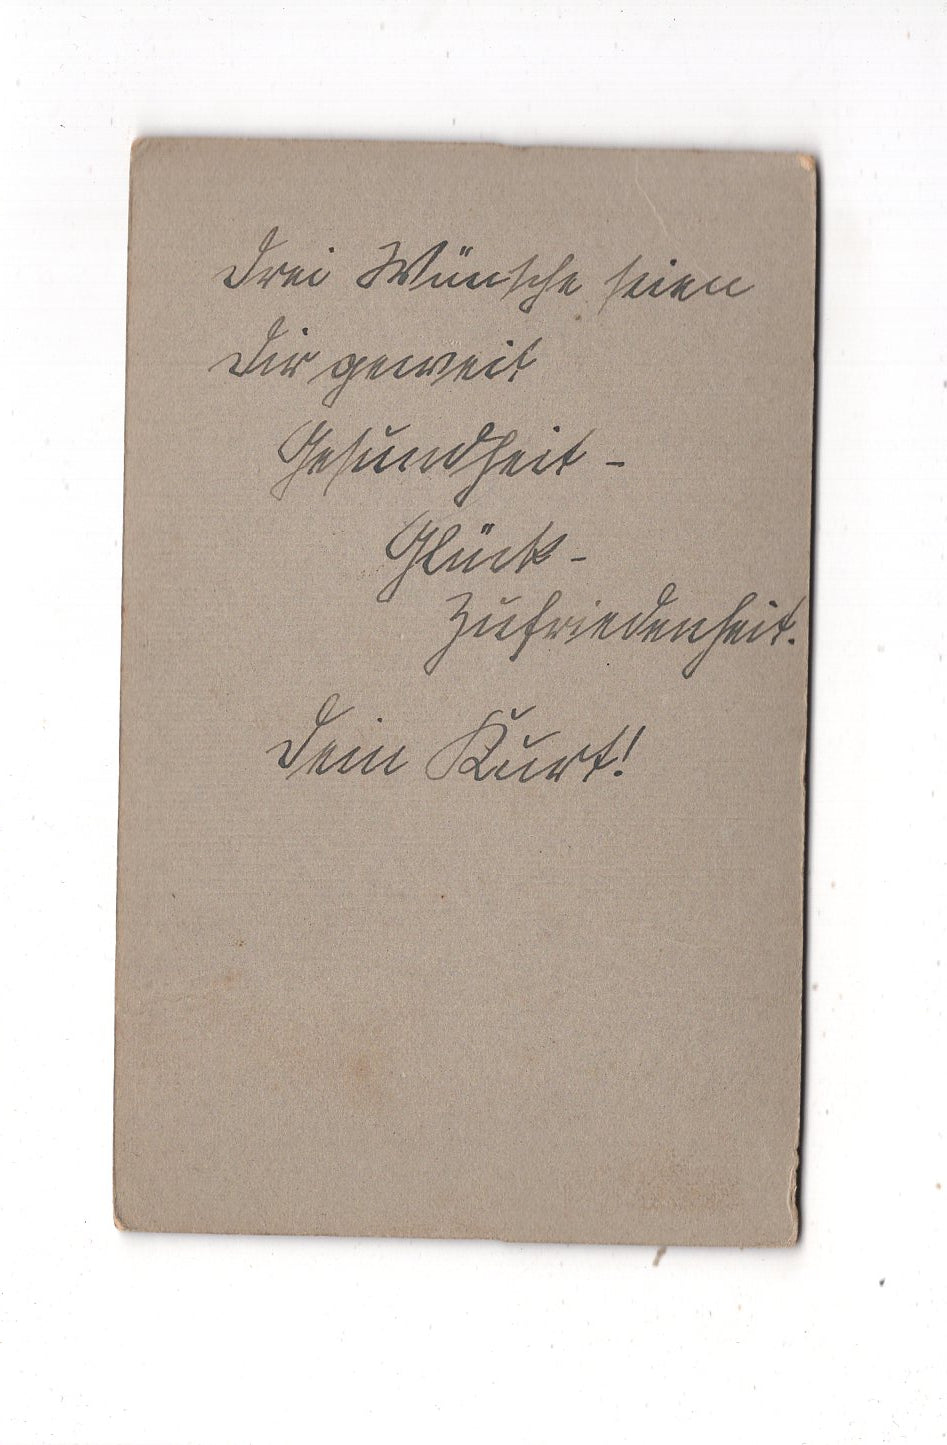 Drei Wünsche seien
Dir geweit
Gesundheit -
Glück -
Zufriedenheit.
Dein Kurt!